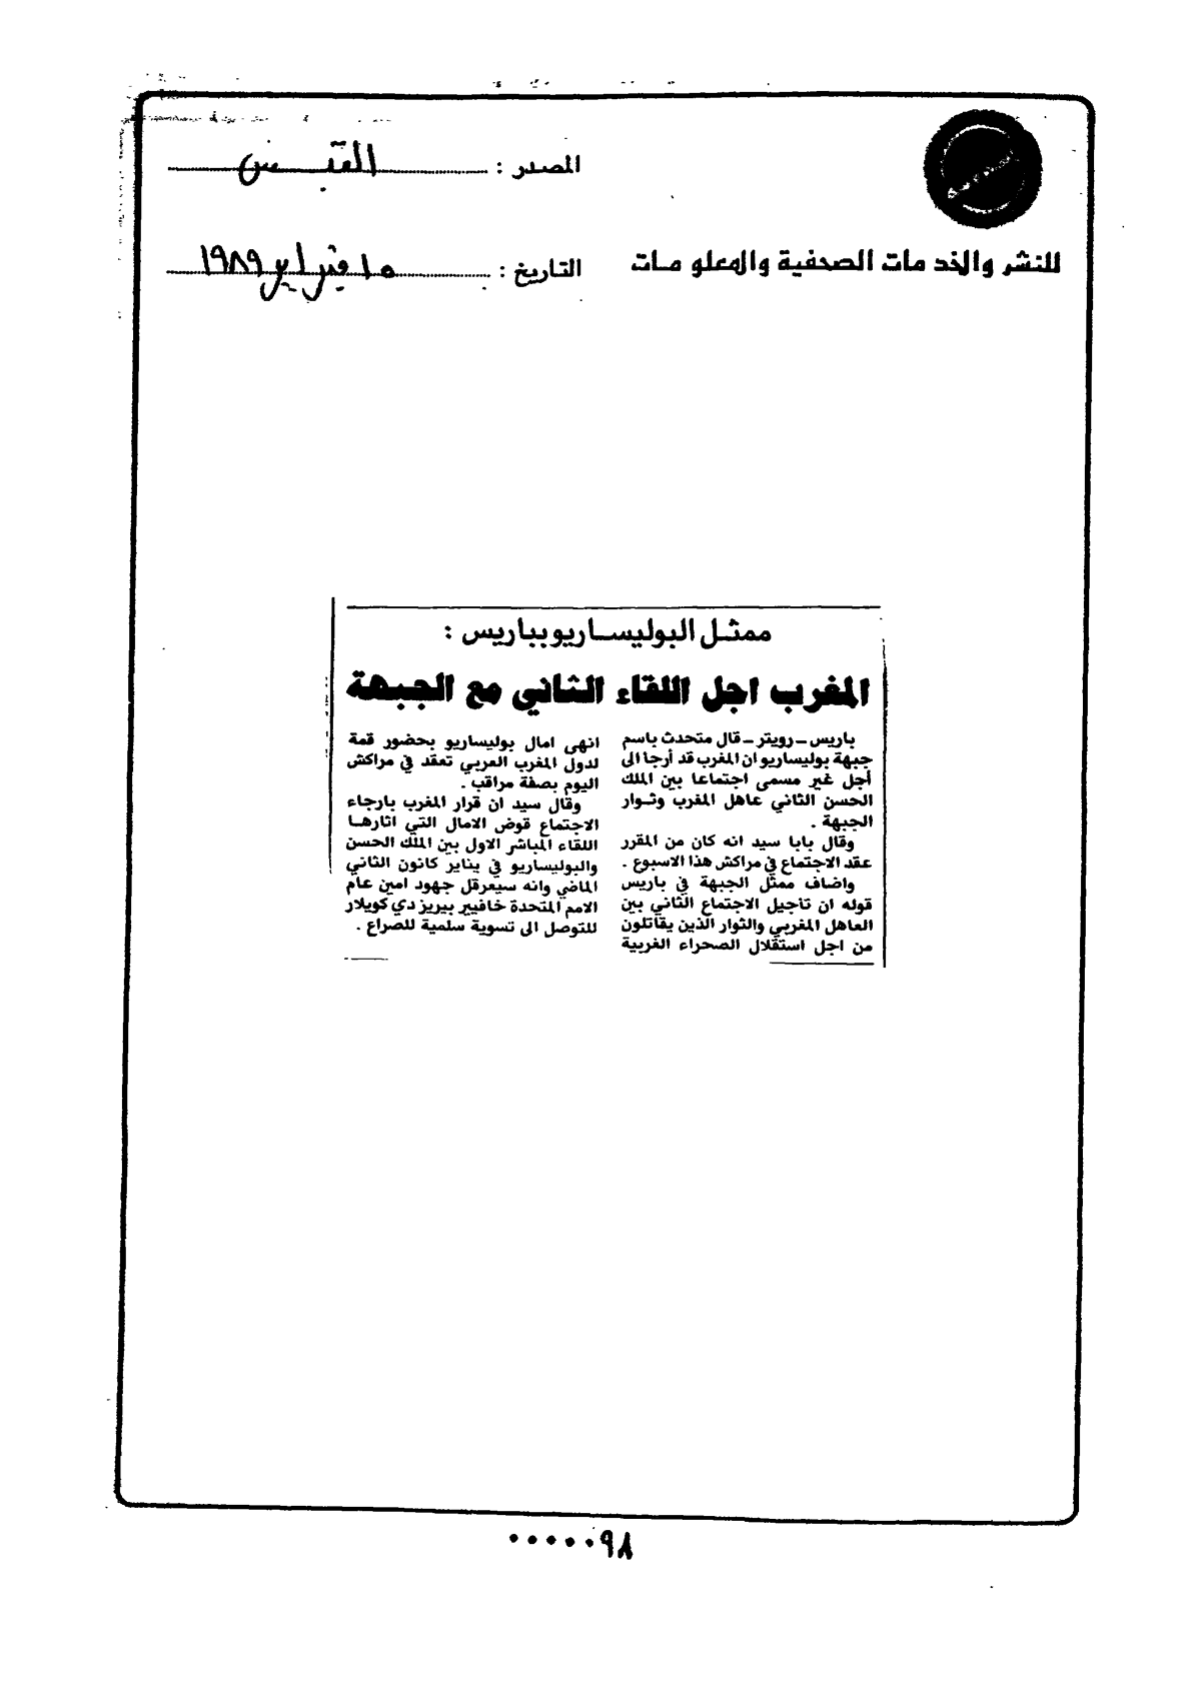 المصدر : القبس
للنشر والخدمات الصحفية والمعلومات
التاريخ : ١٥ فبراير ١٩٨٩
ممثل البوليساريو بباريس :
المغرب اجل اللقاء الثاني مع الجبهة
باريس - رويتر - قال متحدث باسم
جبهة بوليساريو ان المغرب قد أرجا الى
أجل غير مسمى اجتماعا بين الملك
الحسن الثاني عاهل المغرب وثوار
الجبهة .
وقال بابا سيد انه كان من المقرر
عقد الاجتماع في مراكش هذا الاسبوع .
واضاف ممثل الجبهة في باريس
قوله ان تاجيل الاجتماع الثاني بين
العاهل المغربي والثوار الذين يقاتلون
من اجل استقلال الصحراء الغربية
انهى امال بوليساريو بحضور قمة
لدول المغرب العربي تعقد في مراكش
اليوم بصفة مراقب .
وقال سيد ان قرار المغرب بارجاء
الاجتماع قوض الامال التي اثارها
اللقاء المباشر الاول بين الملك الحسن
والبوليساريو في يناير كانون الثاني
الماضي وانه سيعرقل جهود امين عام
الامم المتحدة خافيير بيريز دي كويلار
للتوصل الى تسوية سلمية للصراع .
٠٠٠٠٠٩٨